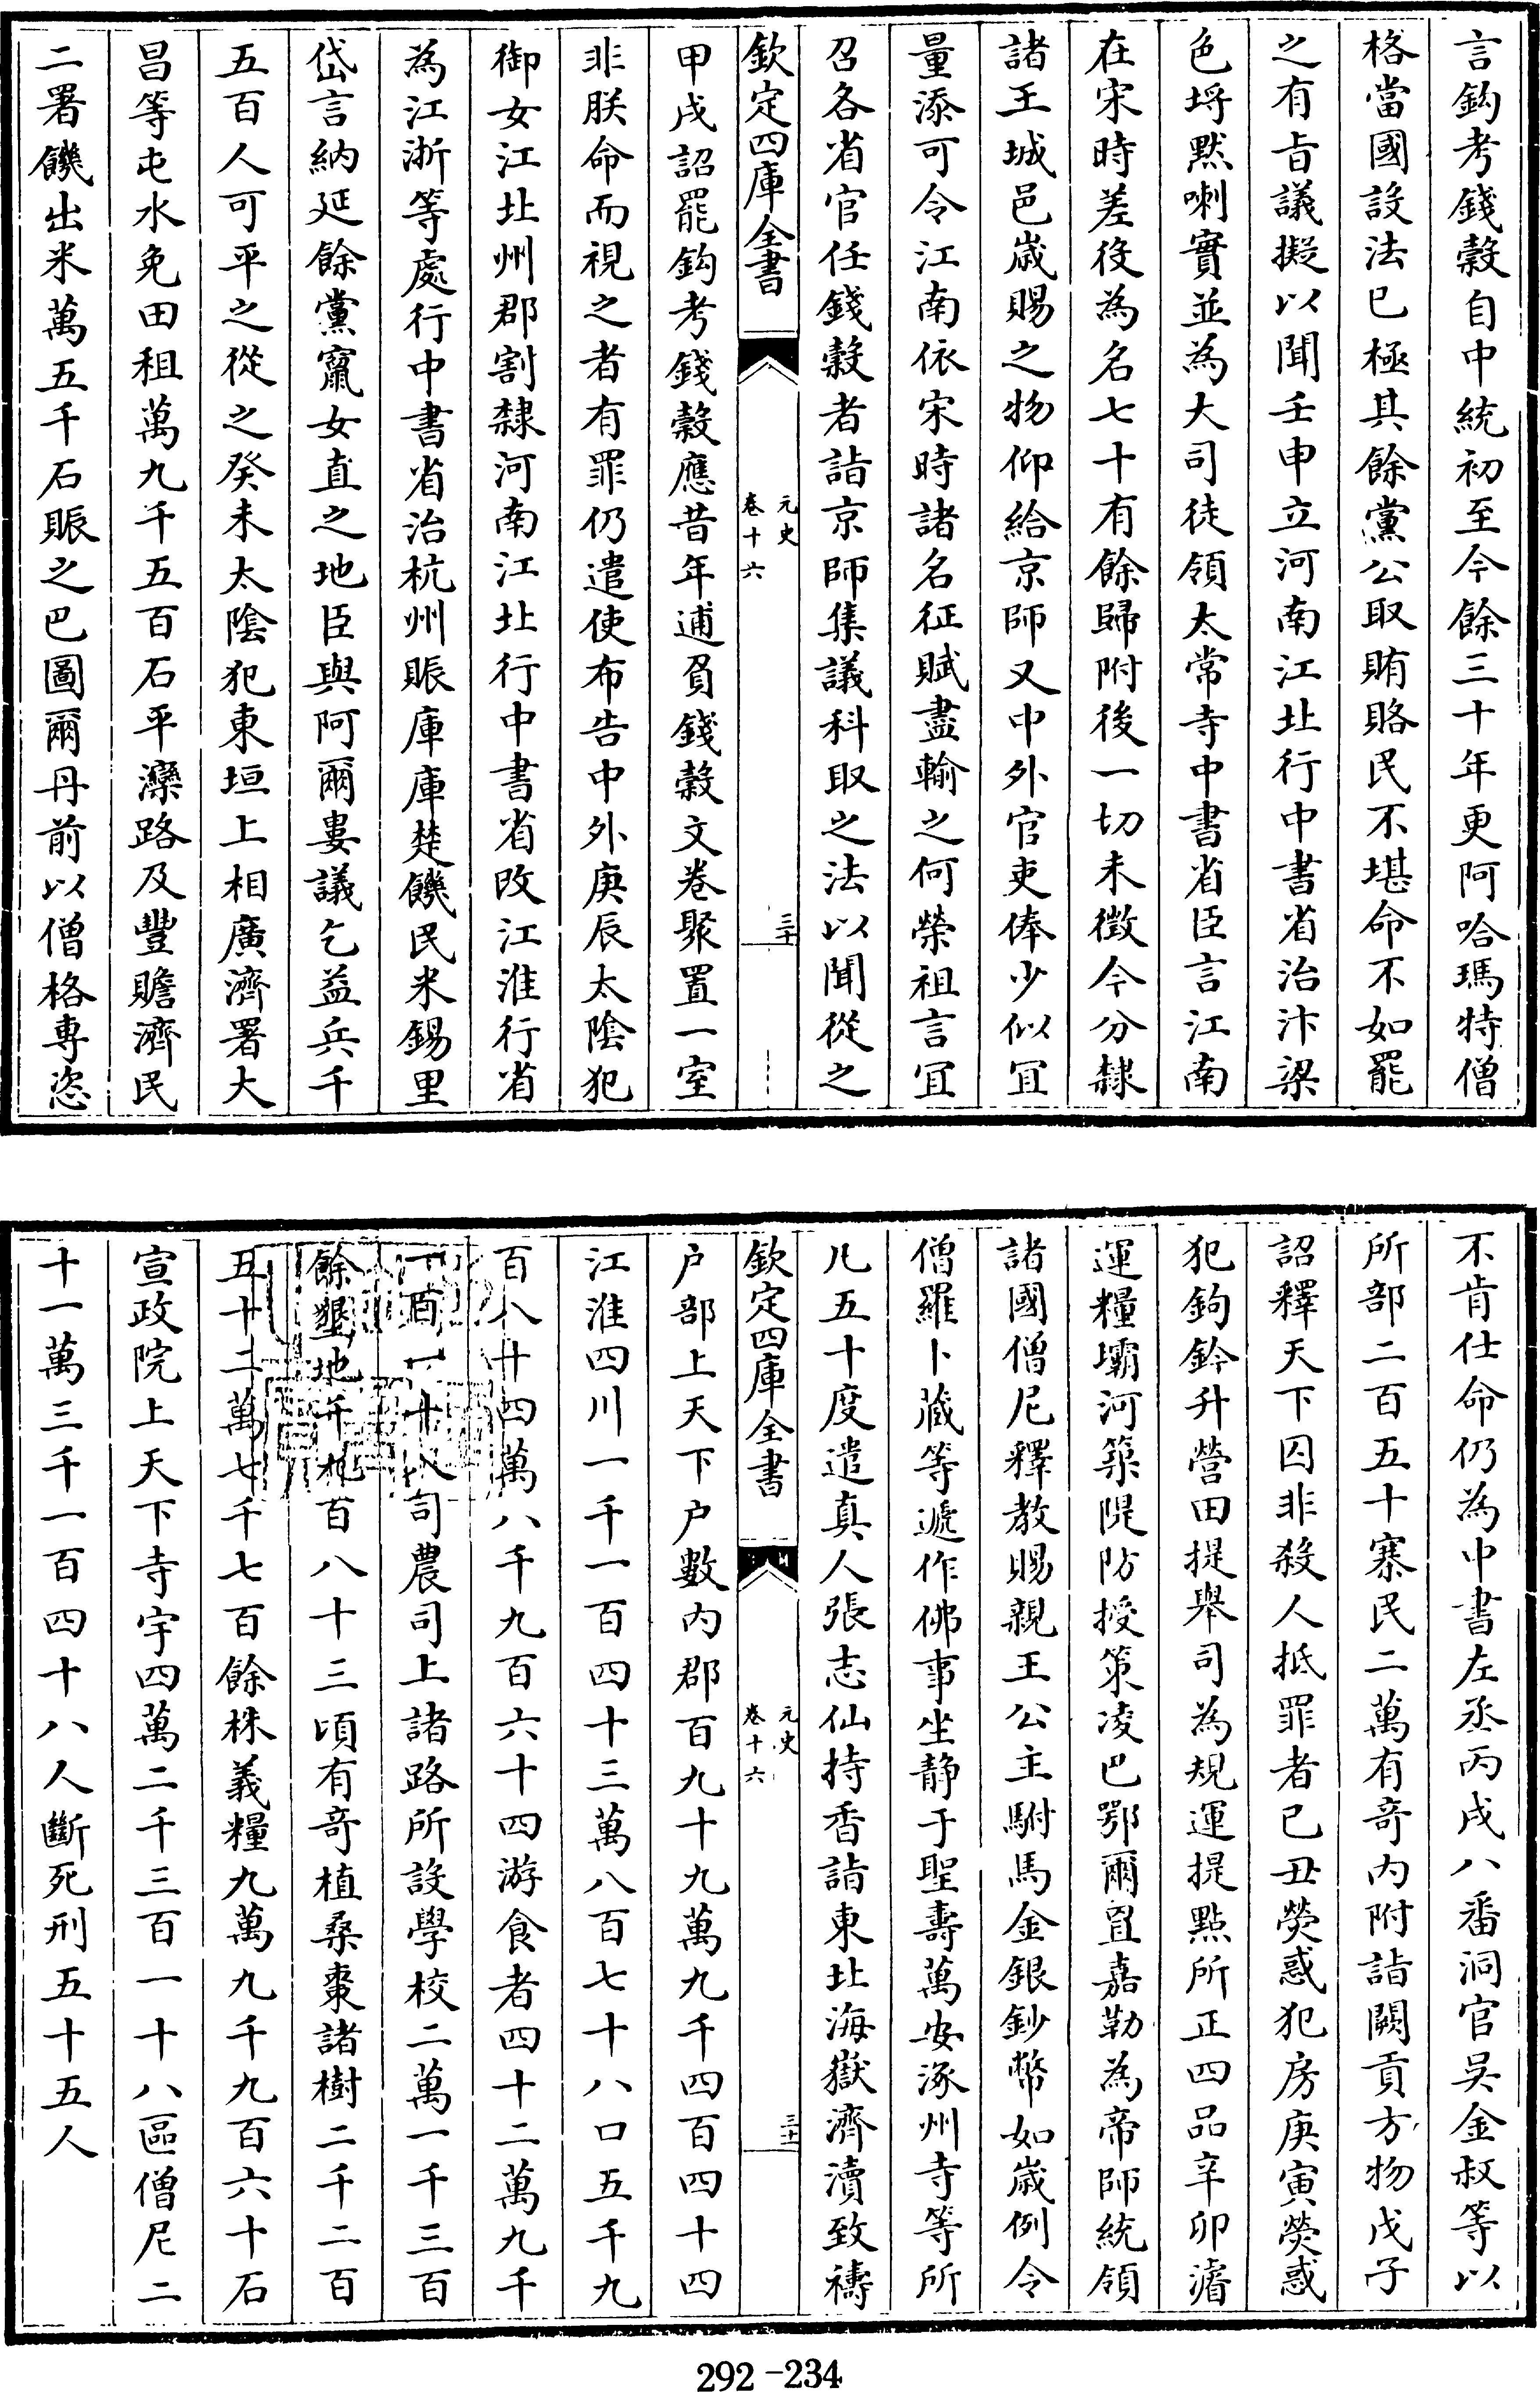 言鈎考錢穀自中統初至今餘三十年更阿哈瑪特僧
格當國設法已極其餘黨公取賄賂民不堪命不如罷
之有旨議擬以聞壬申立河南江北行中書省治汴梁
色埒默喇實並為大司徒領太常寺中書省臣言江南
在宋時差役為名七十有餘歸附後一切未徵今分隸
諸王城邑歲賜之物仰給京師又中外官吏俸少似宜
量添可令江南依宋時諸名征賦盡輸之何榮祖言宜
召各省官任錢穀者詣京師集議科取之法以聞從之
欽定四庫全書
元史
卷十六
三十
甲戌詔罷鈎考錢穀應昔年逋負錢穀文卷聚置一室
非朕命而視之者有罪仍遣使布告中外庚辰太陰犯
御女江北州郡割隸河南江北行中書省改江淮行省
為江浙等處行中書省治杭州賑庫庫楚饑民米錫里
岱言納延餘黨竄女直之地臣與阿爾婁議乞益兵千
五百人可平之從之癸未太陰犯東垣上相廣濟署大
昌等屯水免田租萬九千五百石平灤路及豐贍濟民
二署饑出米萬五千石賑之巴圖爾丹前以僧格專恣
不肯仕命仍為中書左丞丙戌八番洞官吳金叔等以
所部二百五十寨民二萬有奇内附詣闕貢方物戊子
詔釋天下囚非殺人抵罪者已丑熒惑犯房庚寅熒惑
犯鉤鈐升營田提舉司為規運提點所正四品辛卯濬
運糧壩河築隄防授策凌巴鄂爾嘉勒為帝師統領
諸國僧尼釋教賜親王公主駙馬金銀鈔幣如歲例令
僧羅卜藏等遞作佛事坐静于聖壽萬安涿州寺等所
凡五十度遣真人張志仙持香詣東北海嶽濟瀆致禱
欽定四庫全書
元史
卷十六
三十一
户部上天下户數内郡百九十九萬九千四百四十四
江淮四川一千一百四十三萬八百七十八口五千九
百八十四萬八千九百六十四游食者四十二萬九千
一百一十八司農司上諸路所設學校二萬一千三百
餘墾地千九百八十三頃有奇植桑棗諸樹二千二百
五十二萬七千七百餘株義糧九萬九千九百六十石
宣政院上天下寺宇四萬二千三百一十八區僧尼二
十一萬三千一百四十八人斷死刑五十五人
292-234